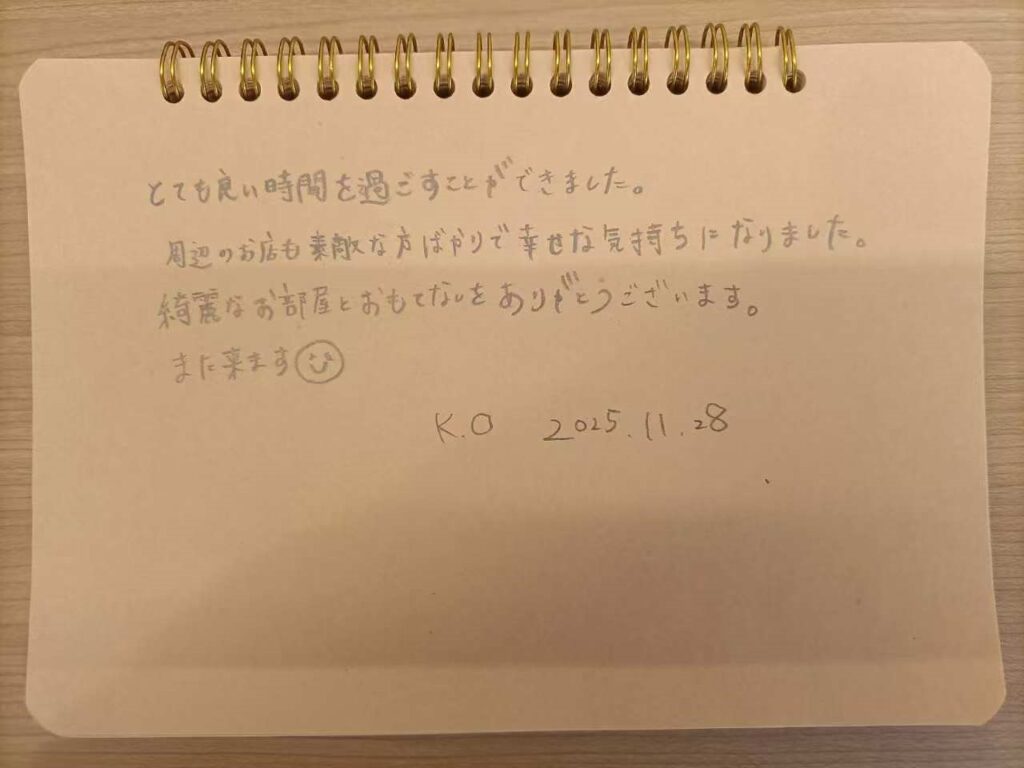 とても良い時間を過ごすことができました。
周辺のお店も素敵な方ばかりで幸せな気持ちになりました。
綺麗なお部屋とおもてなしをありがとうございます。
また来ます
K.O 2025.11.28